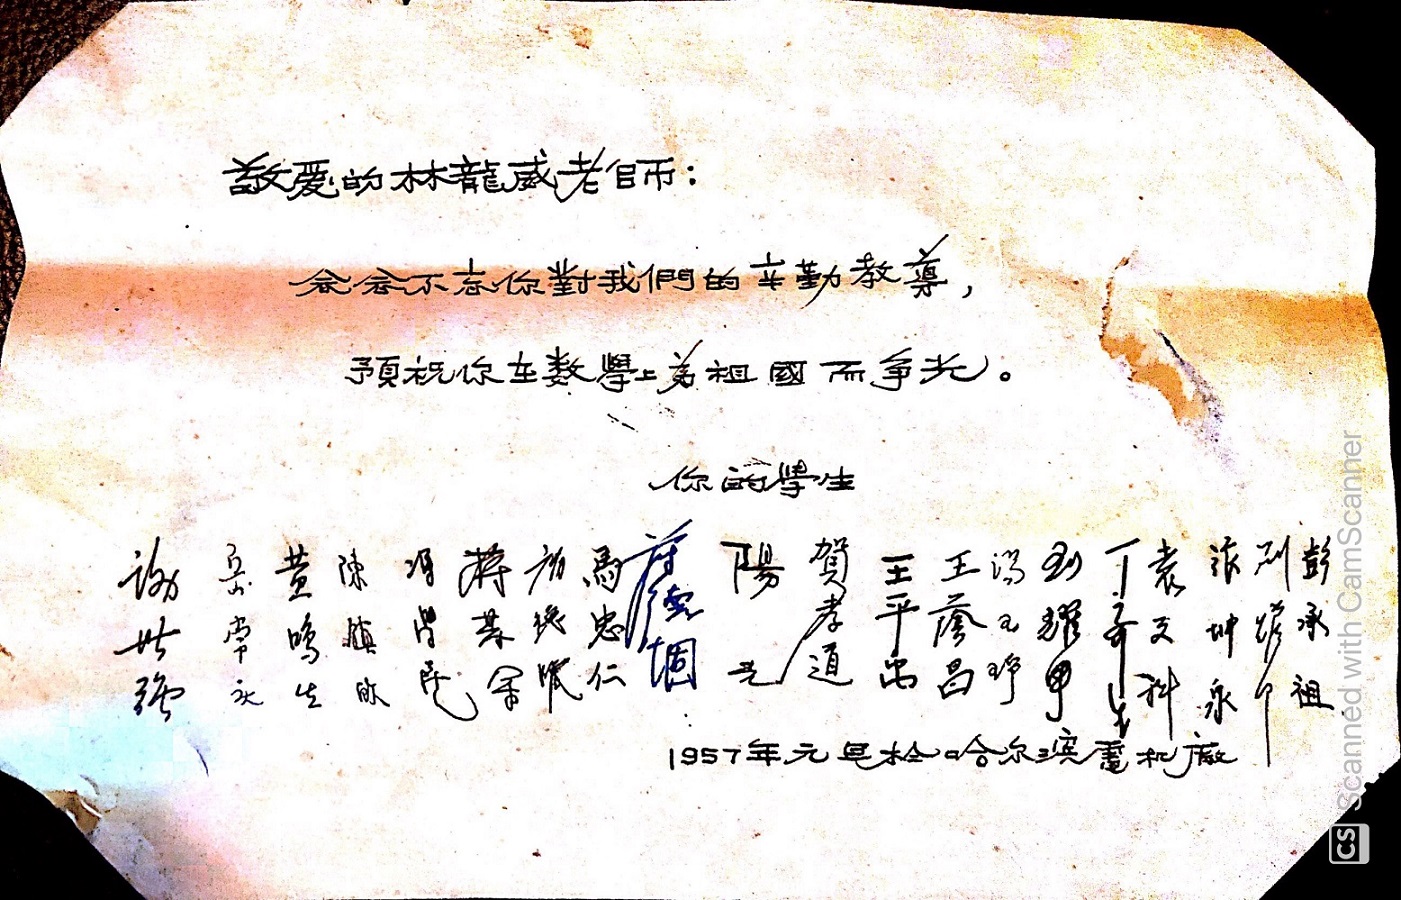 敬爱的林龍威老師：
念念不忘你對我們的辛勤教導，
預祝你在数學上为祖國而爭光。
你的學生
彭承祖
刘
張坤泉
袁文科
丁奇生
劉耀甲
馮玉琤
王蔭昌
王平
賀孝道
陽光
馬忠仁
蔣
陳鎮
黄鳴生
岳常永
謝世強
1957年元旦於哈尔滨電机廠
CS Scanned with CamScanner